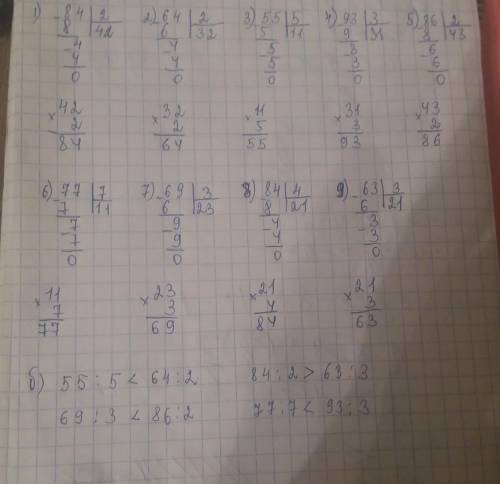 1) 84 | 2   2) 64 | 2   3) 55 | 5   4) 93 | 3   5) 86 | 2
- 8 | 42   6 | 32   5 | 11   9 | 31   8 | 43
- 4   - 4   - 5   - 3   - 6
4   4   5   3   6
0   0   0   0   0
× 42   × 32   × 11   × 31   × 43
2   2   5   3   2
84   64   55   93   86
6) 77 | 7   7) 69 | 3   8) 84 | 4   9) 63 | 3
- 7 | 11   6 | 23   8 | 21   6 | 21
- 7   - 9   - 4   - 3
7   9   4   3
0   0   0   0
× 11   × 23   × 21   × 21
7   3   4   3
77   69   84   63
б) 55 : 5 < 64 : 2   84 : 2 > 63 : 3
69 : 3 < 86 : 2   77 : 7 < 93 : 3